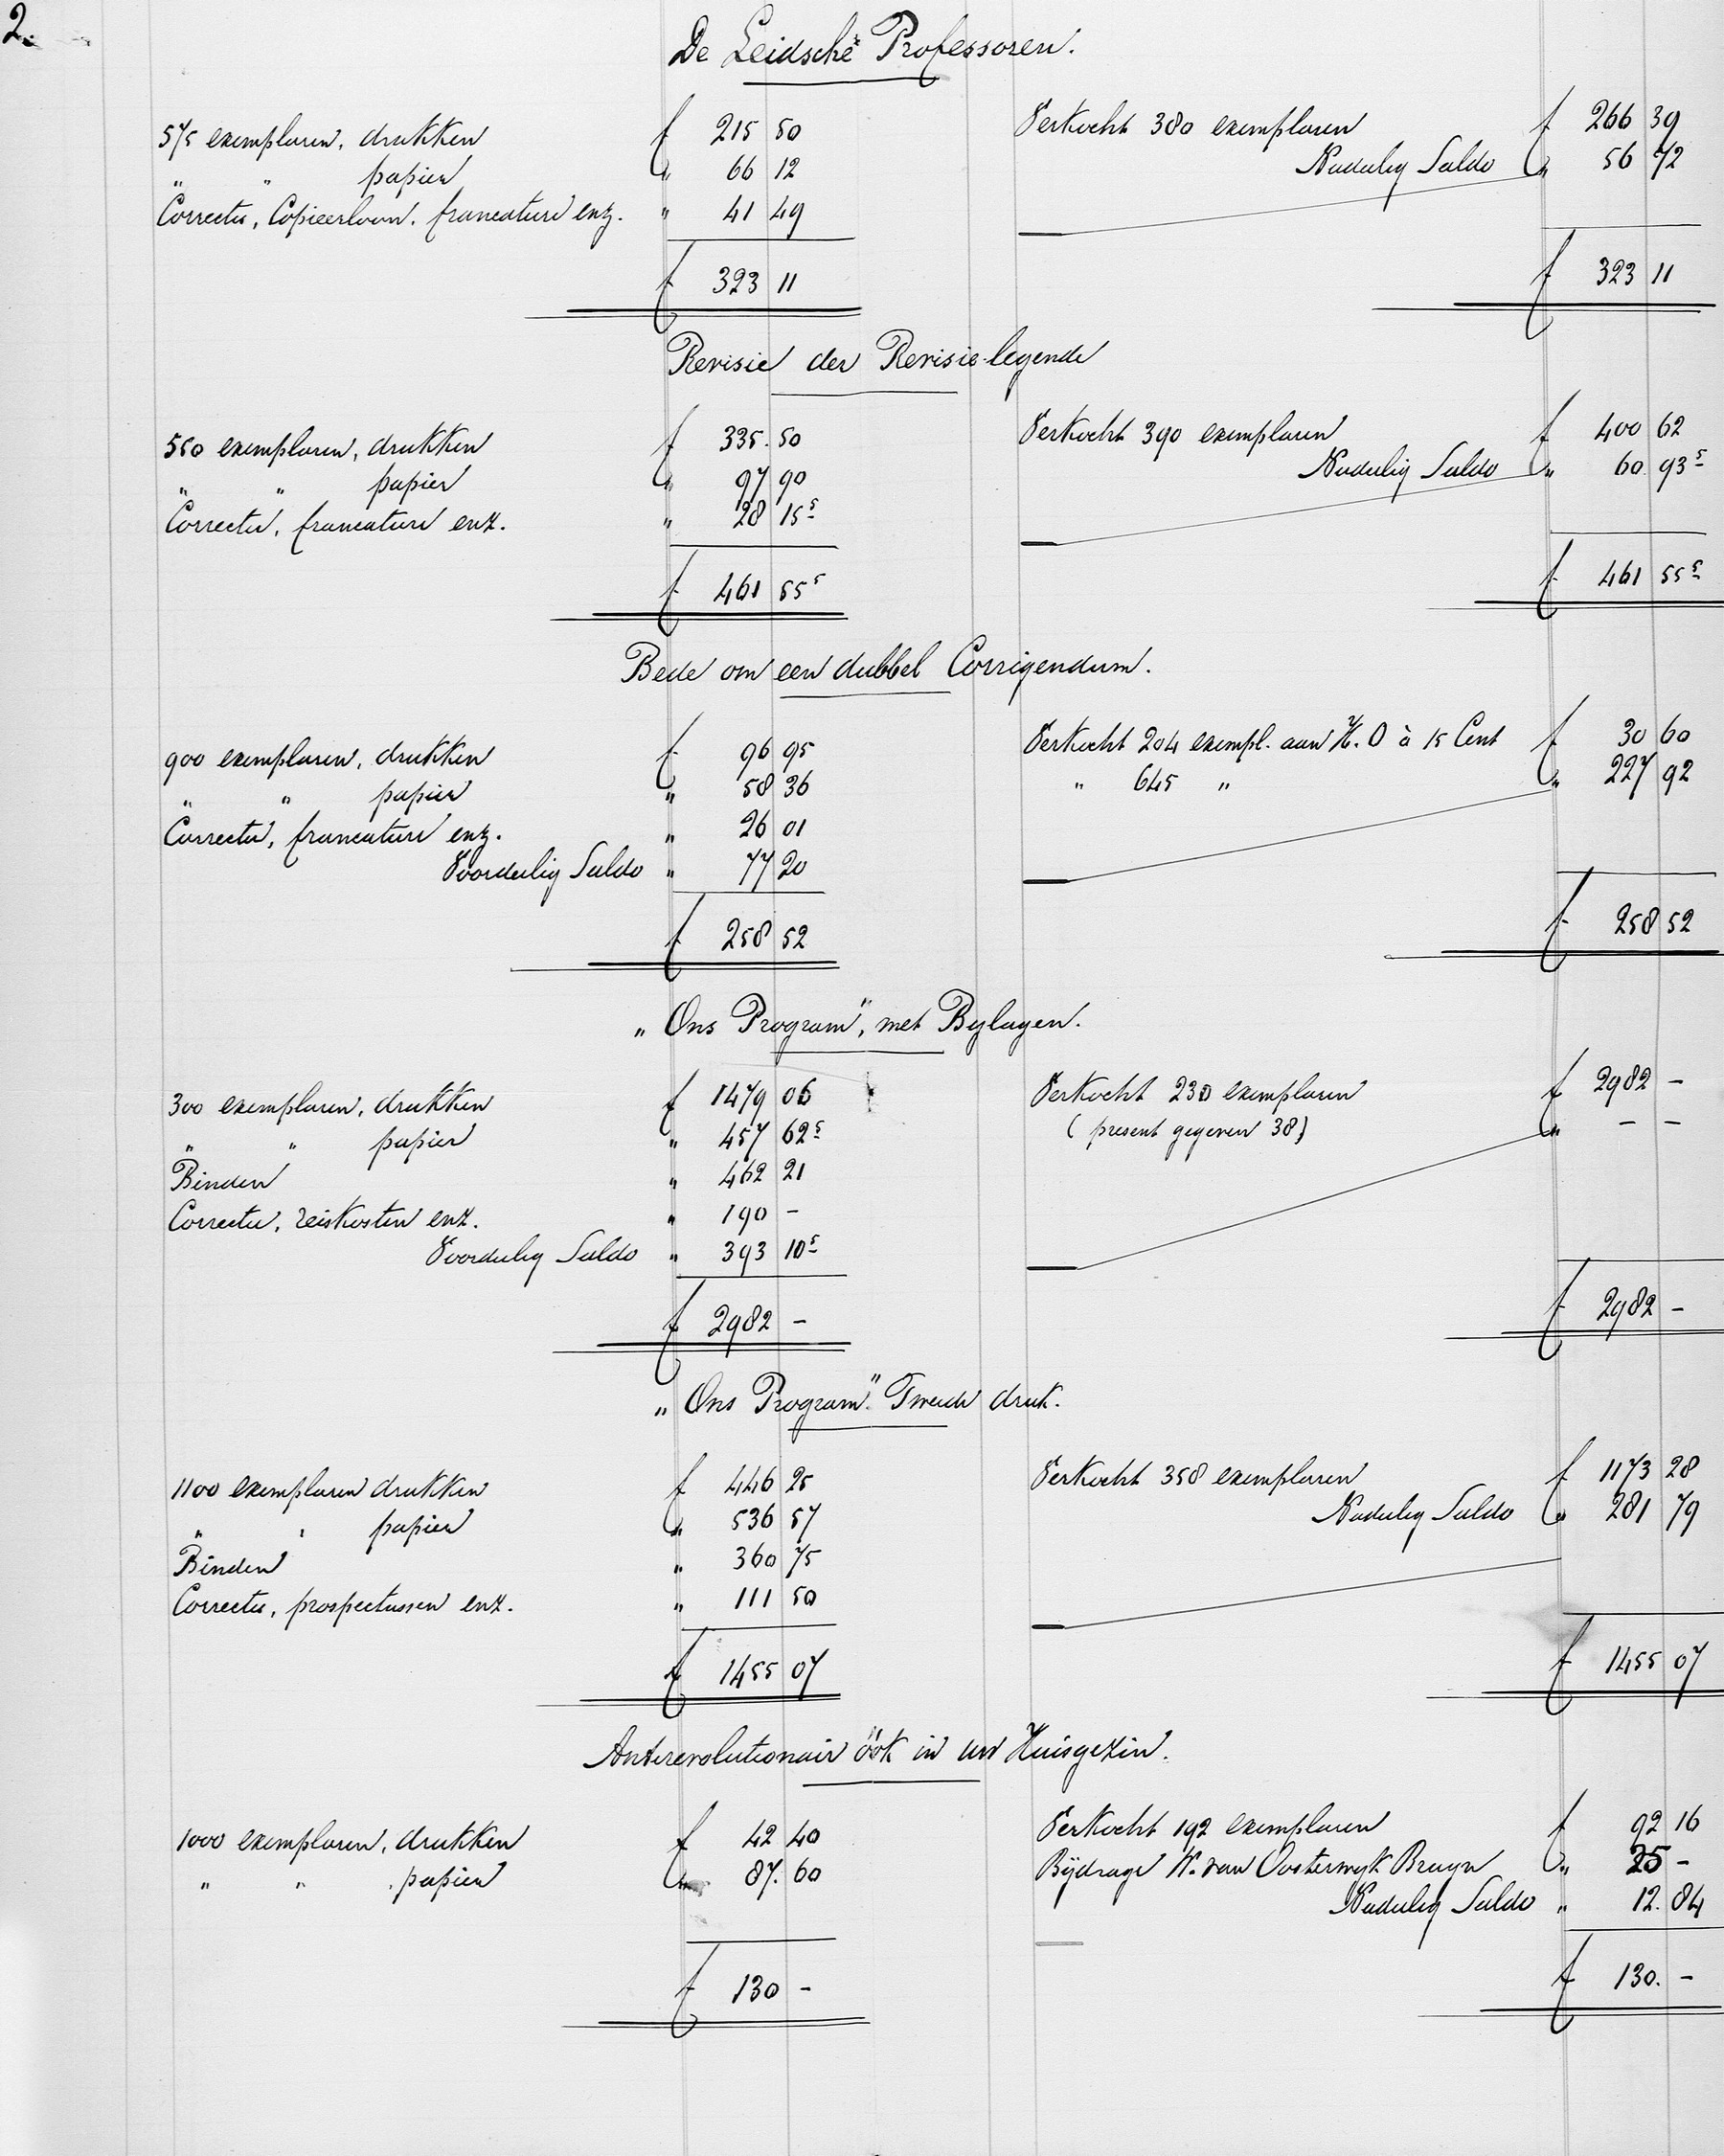 2.
De Leidsche Professoren.
575 exemplaren, drukken f 215 50 Verkocht 380 exemplaren f 266 39
" " papier " 66 12 Nadeelig Saldo " 56 72
Correctie, Copieerloon, francature enz. " 41 49
f 323 11 f 323 11
Revisie der Revisie-legende
550 exemplaren, drukken f 335.50 Verkocht 390 exemplaren f 400 62
" " papier " 97 90 Nadeelig Saldo " 60.93⁵
Correctie, francature enz. " 28 15⁵
f 461 55⁵ f 461 55⁵
Bede om een dubbel Corrigendum.
900 exemplaren, drukken f 96 95 Verkocht 204 exempl. aan H. O à 15 Cent f 30 60
" " papier " 58 36 " 645 " " 227 92
Correctie, francature enz. " 26 01
Voordeelig Saldo " 77 20
f 258 52 f 258 52
„Ons Program", met Bylagen.
300 exemplaren, drukken f 1479 06 Verkocht 230 exemplaren f 2982 -
" " papier " 457 62⁵ (present gegeven 38) " - -
Binden " 462 21
Correctie, reiskosten enz. " 190 -
Voordeelig Saldo " 393 10⁵
f 2982 - f 2982 -
„Ons Program". Tweede druk.
1100 exemplaren drukken f 446 25 Verkocht 358 exemplaren f 1173 28
" " papier " 536 57 Nadeelig Saldo " 281 79
Binden " 360 75
Correctie, prospectussen enz. " 111 50
f 1455 07 f 1455 07
Antirevolutionair óók in uw Huisgezin.
1000 exemplaren, drukken f 42 40 Verkocht 192 exemplaren f 92 16
" " papier " 87.60 Bijdrage W. van Oosterwyk Bruyn " 25 -
Nadeelig Saldo " 12.84
f 130 - f 130. -